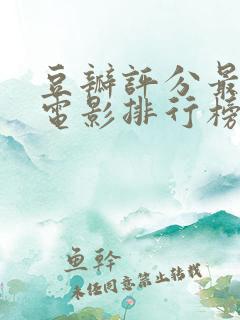 豆瓣評分最
電影排行榜
鱼幹
未经同意禁止转载